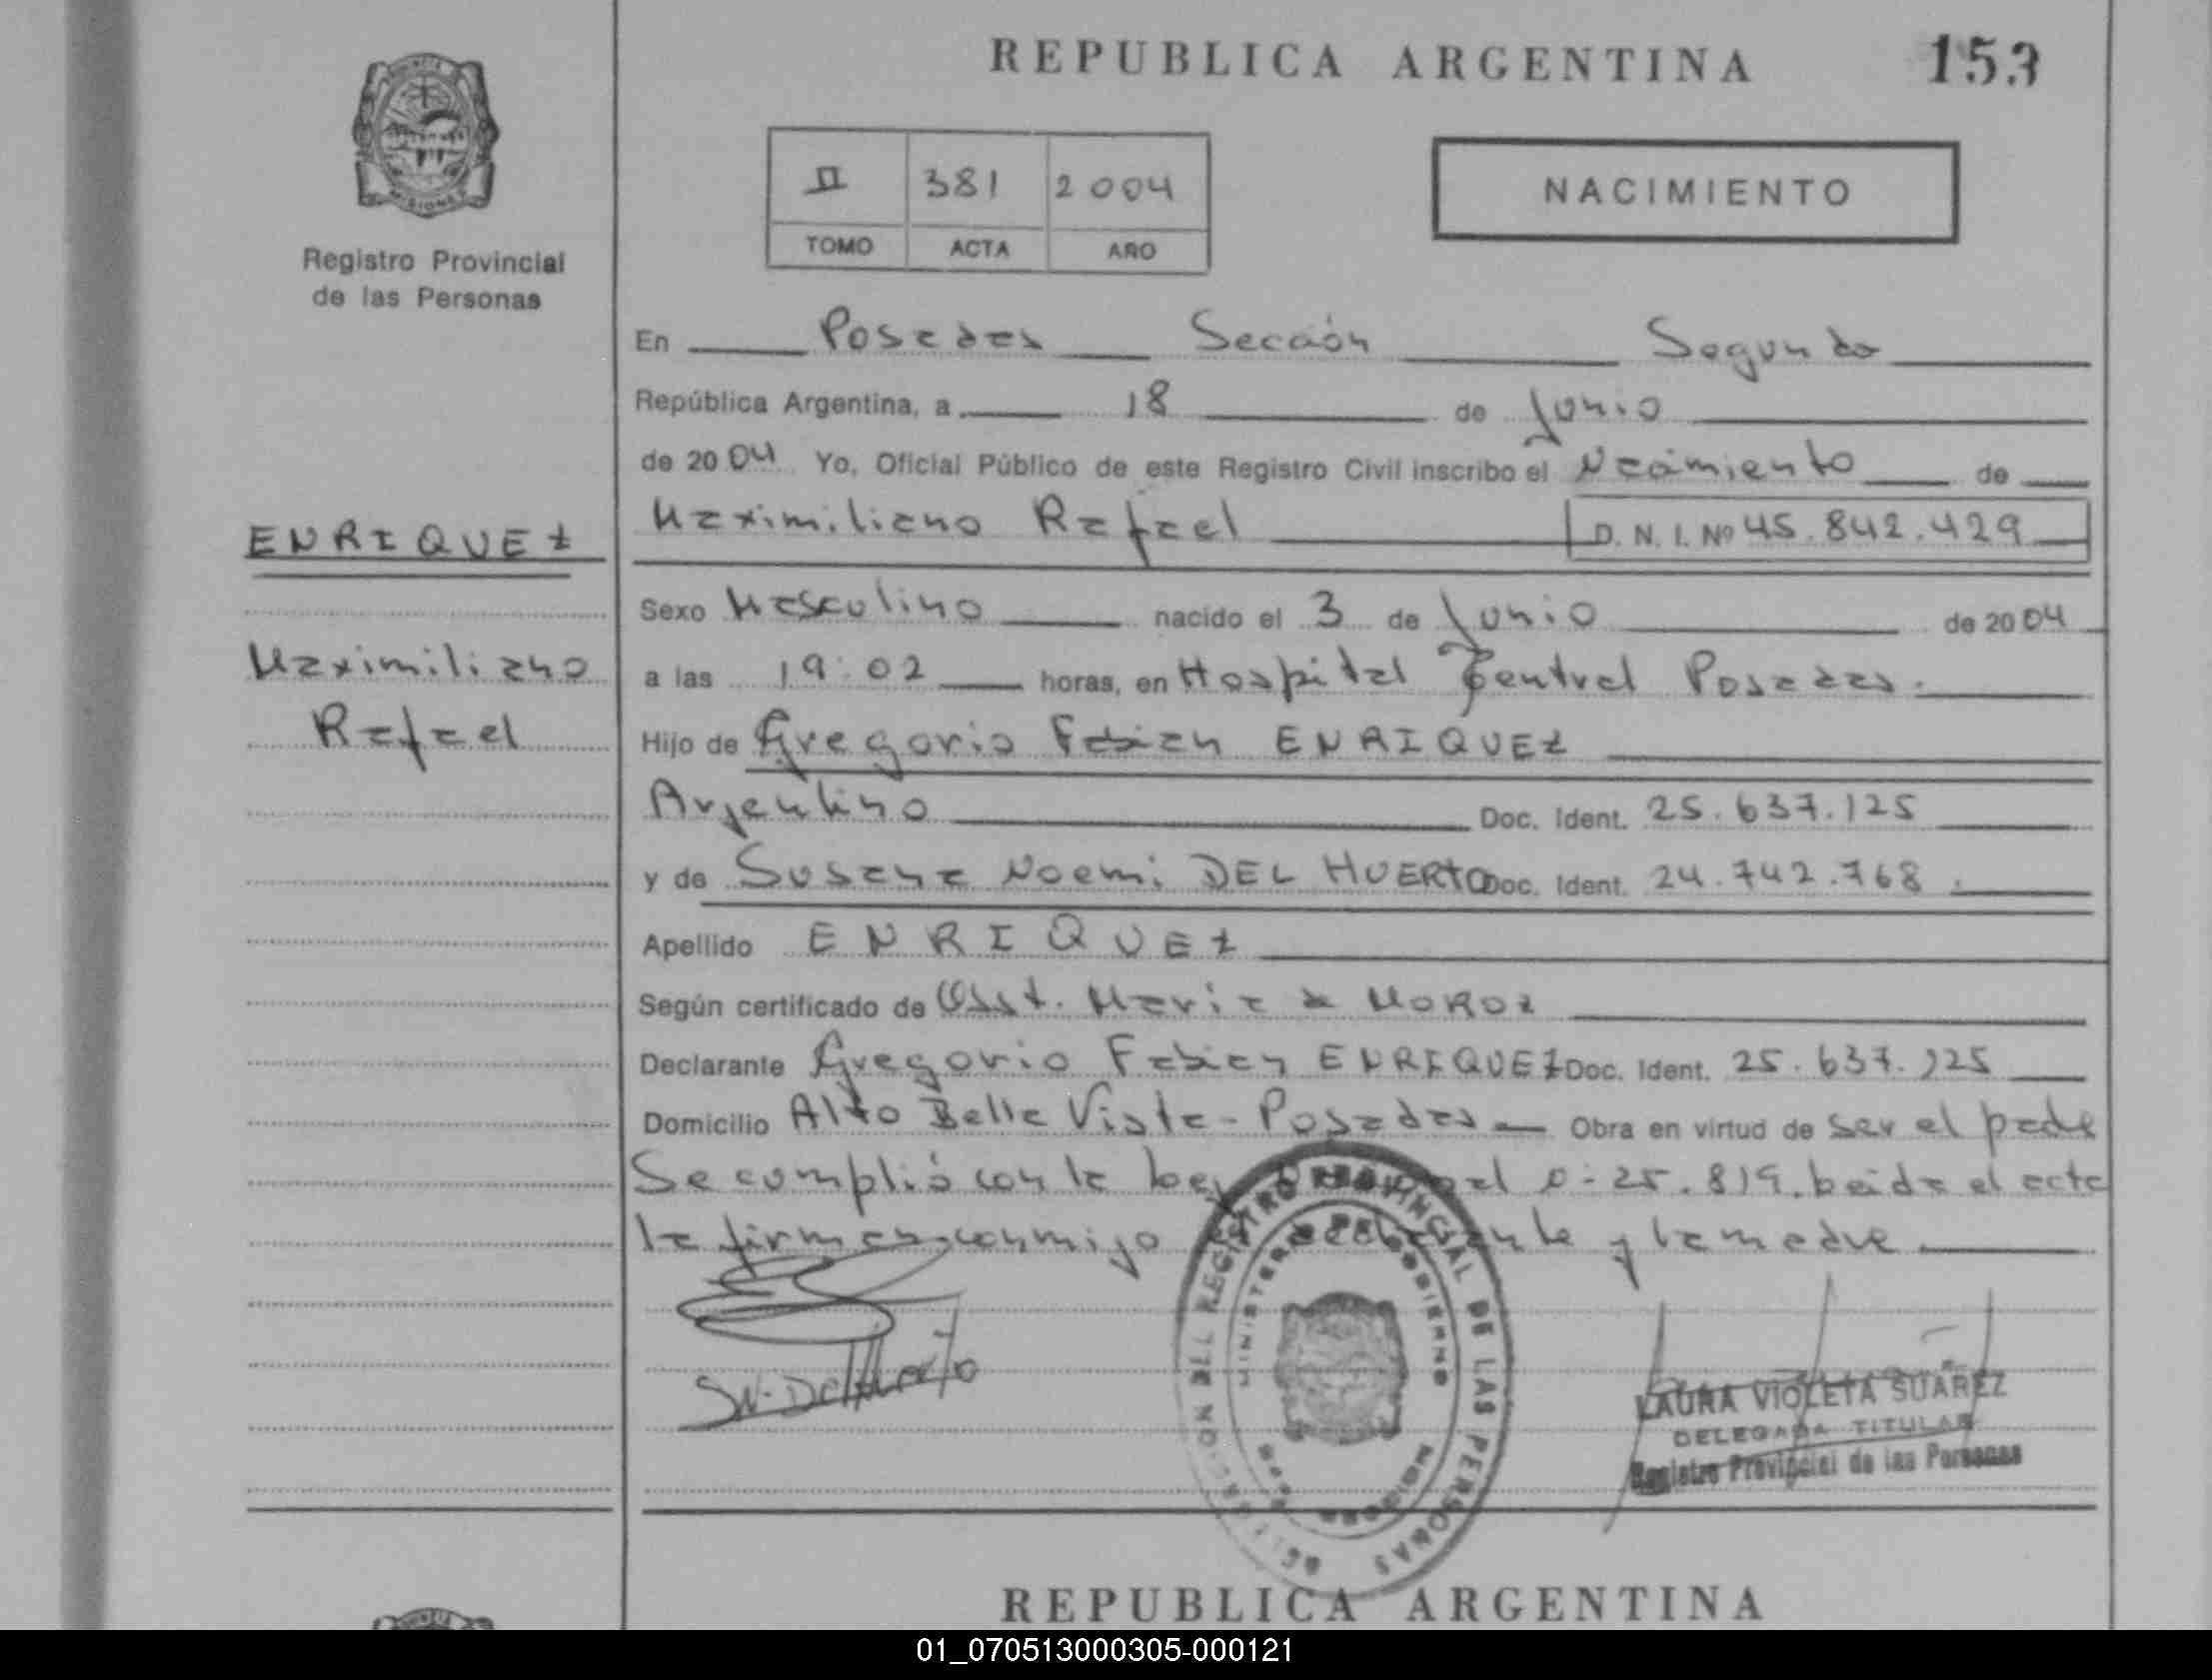 REPUBLICA ARGENTINA
153
PROVINCIA
MISIONES
Registro Provincial
de las Personas
II 381 2004
TOMO ACTA AÑO
NACIMIENTO
En Posadas Sección Segunda
República Argentina, a 18 de Junio
de 2004 Yo, Oficial Público de este Registro Civil inscribo el Nacimiento de
Maximiliano Rafael D. N. I. Nº 45.842.429
ENRIQUEZ
Maximiliano
Rafael
Sexo Masculino nacido el 3 de Junio de 2004
a las 19:02 horas, en Hospital Central Posadas.
Hijo de Gregorio Fabian ENRIQUEZ
Argentino Doc. Ident. 25.637.125
y de Susana Noemi DEL HUERTO Doc. Ident. 24.742.768.
Apellido ENRIQUEZ
Según certificado de Obst. Maria MOROZ
Declarante Gregorio Fabian ENRIQUEZ Doc. Ident. 25.637.125
Domicilio Alto Bella Vista - Posadas Obra en virtud de ser el padre
Se cumplió con la Ley 25.819. Leida el acta
la firman conmigo el declarante y la madre
SN. DelHuerto
REGISTRO PROVINCIAL DE LAS PERSONAS
MINISTERIO DE GOBIERNO
MISIONES
LAURA VIOLETA SUAREZ
DELEGADA TITULAR
Registro Provincial de las Personas
REPUBLICA ARGENTINA
01_070513000305-000121